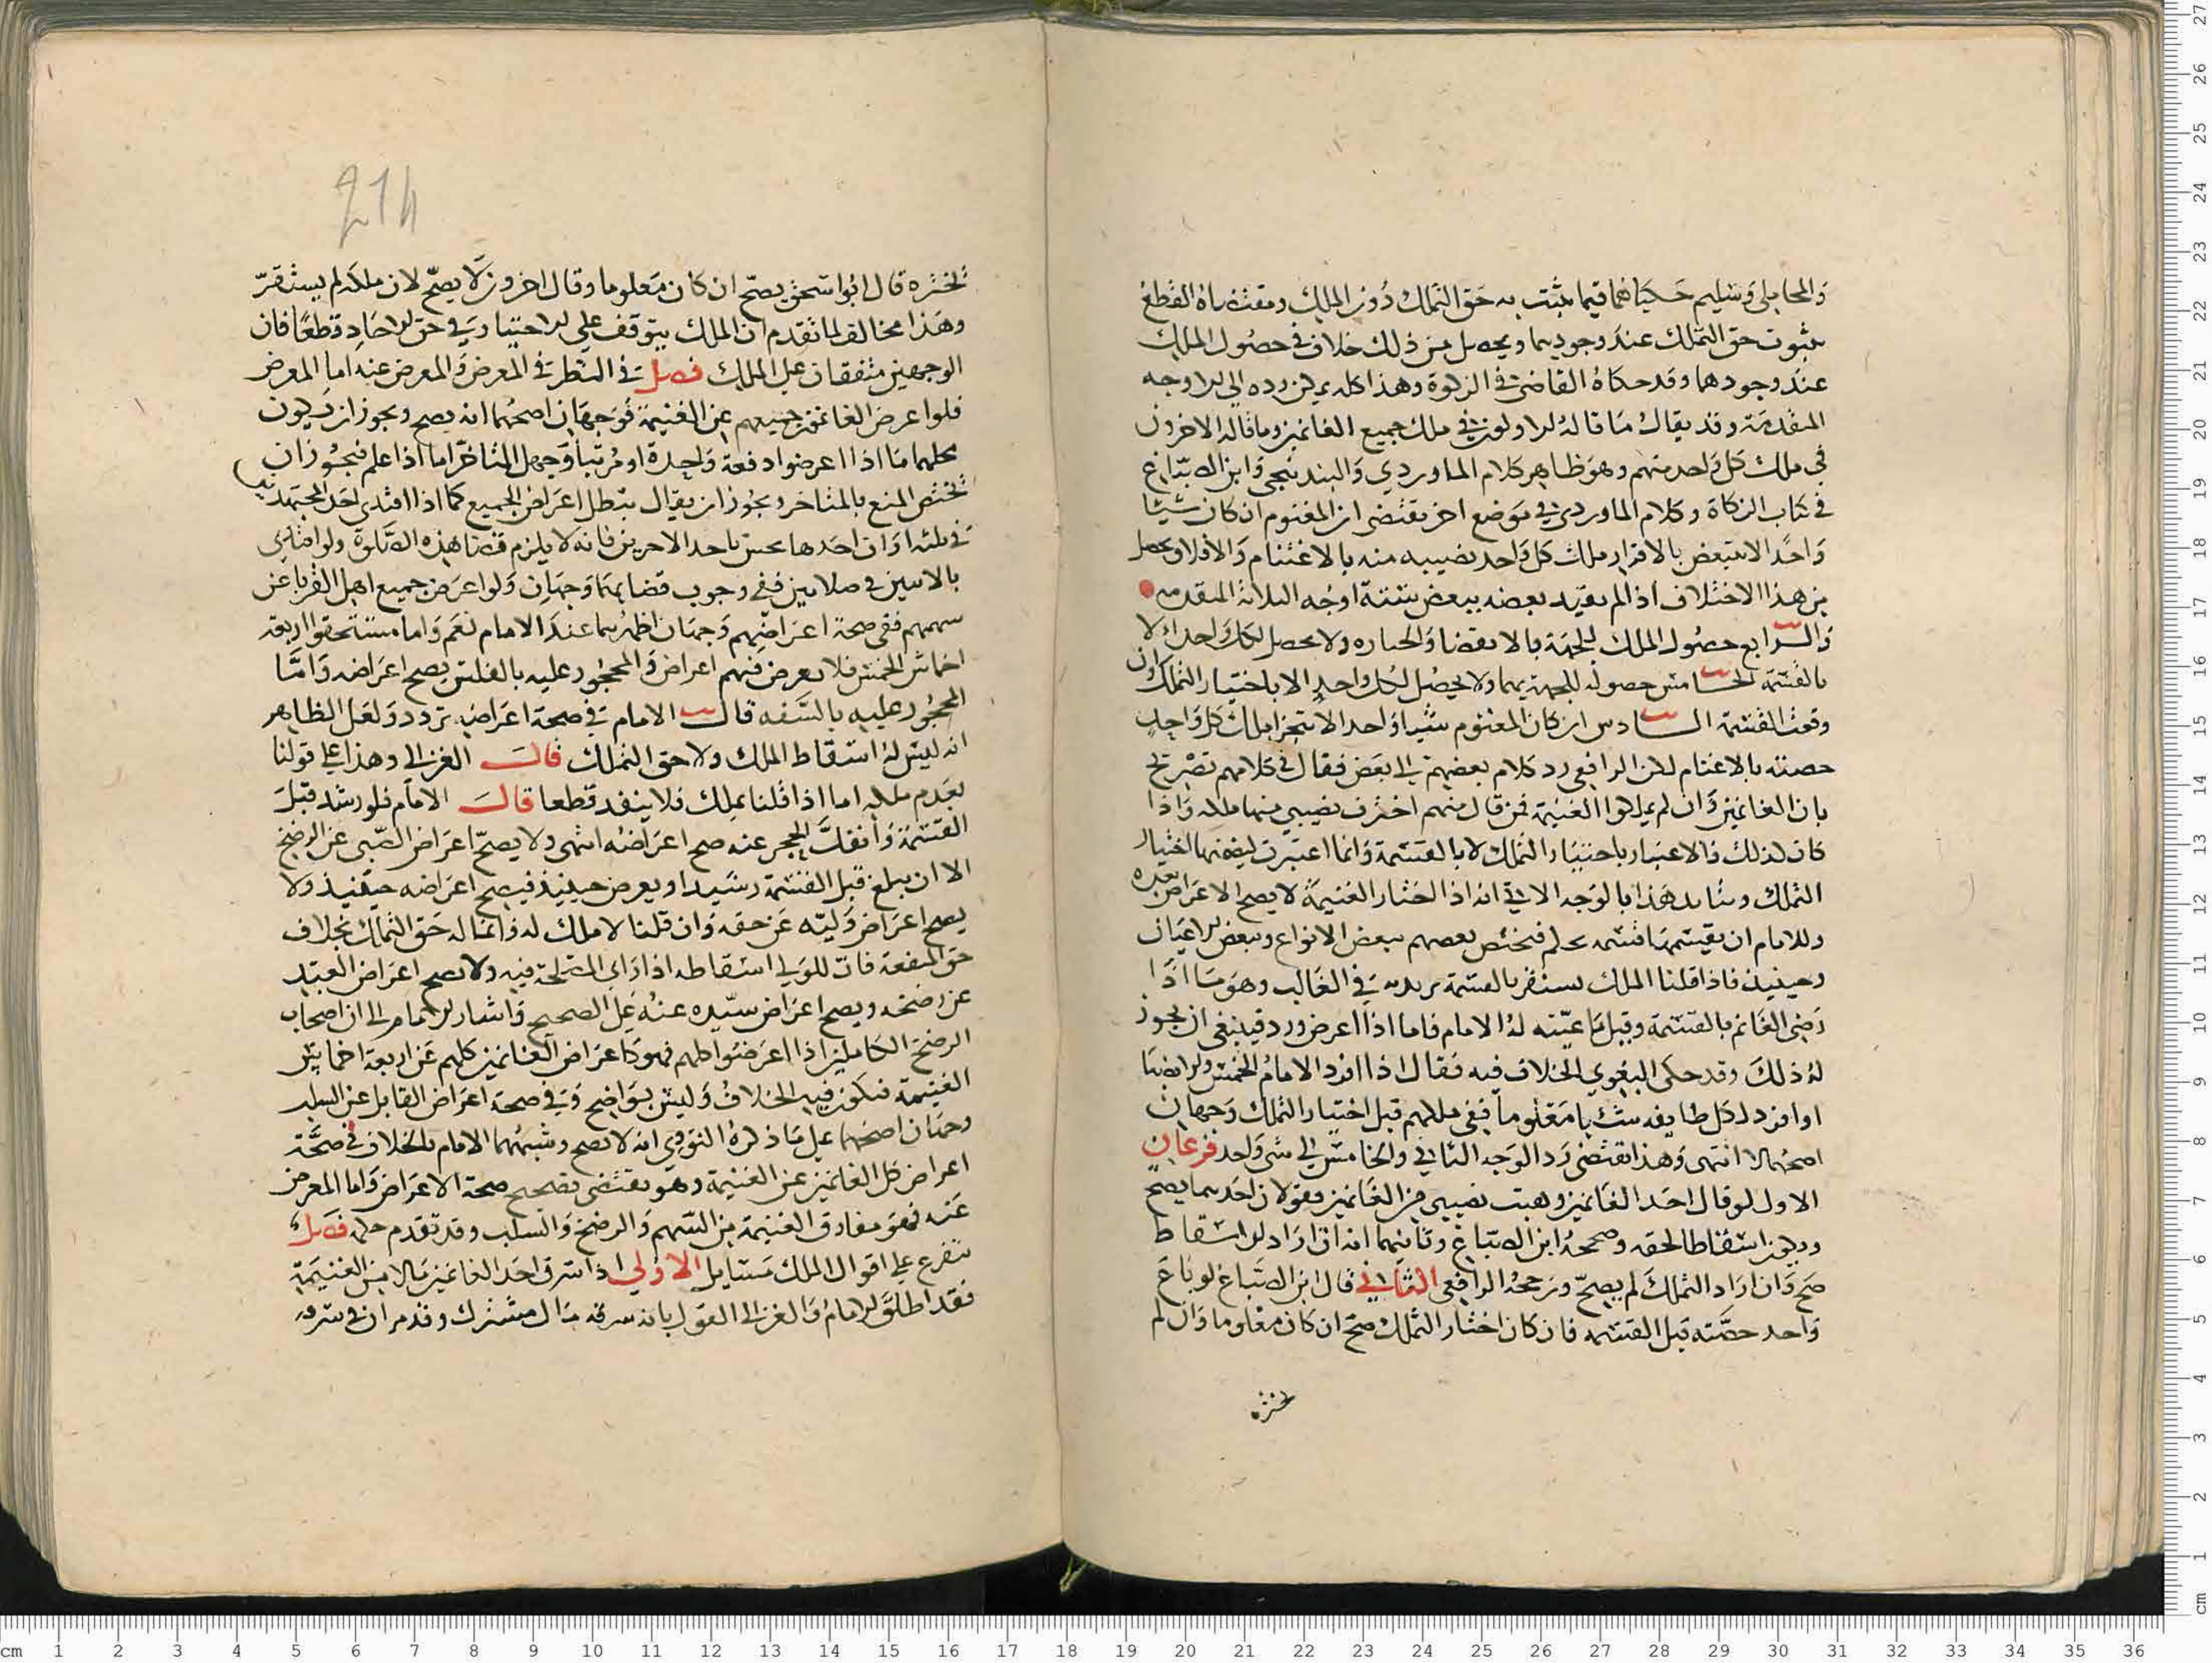 والمحاملي وسليم حكياهما فيما يثبت به حق التملك دون الملك ومقتضاه القطع
بثبوت حق التملك عند وجودهما ويحصل من ذلك خلاف في حصول الملك
عند وجودها وقد حكاه القاضي في الزكوة وهذا كله يمكن رده الى الاوجه
المقدمة وقد يقال ما قاله الاولون في ملك جميع الغانمين وما قاله الاخرون
في ملك كل واحد منهم وهو ظاهر كلام الماوردي والبندنيجي وابن الصباغ
في كتاب الزكاة وكلام الماوردي في موضع اخر يقتضي ان المغنوم ان كان شيئا
واحدا لا يتبعض بالاقرار ملك كل واحد نصيبه منه بالاغتنام والا فلا ويحصل
من هذا الاختلاف اذا لم يقيد بعضه ببعض ستة اوجه الثلاثة المتقدمه
والرابع حصول الملك للجهة بالانقضا والحيازه ولا يحصل لكل واحد الا
بالقسمة الخامس حصوله للجهة بهما ولا يحصل لكل واحد الا باختيار التملك وان
وقعت القسمة السادس ان كان المغنوم شيئا واحدا لا يتجزا ملك كل واحد
حصته بالاغتنام لكن الرافعي رد كلام بعضهم الى بعض فقال في كلامهم تصريح
بان الغانمين وان لم يملكوا الغنيمة فمن قال منهم اخترت نصيبي منها ملكه واذا
كان كذلك فالاعتبار باختيار التملك لا بالقسمة وانما اعتبرت لتضمنها اختيار
التملك وسايد هذا بالوجه الاتي انه اذا اختار الغنيمة لا يصح الاعراض بعده
وللامام ان يقسمها قسمة تحكم فيختص بعضهم ببعض الانواع وببعض الاعيان
وحينيذ فاذا قلنا الملك يستقر بالقسمة يريد به في الغالب وهو ما اذا
رضي الغانم بالقسمة وقبل ما عينه له الامام فاما اذا اعرض ورد فينبغي ان يجوز
له ذلك وقد حكى البغوي الخلاف فيه فقال اذا افرد الامام الخمس والانصبا
او افرد لكل طايفه شيئا معلوما ففي ملكهم قبل اختيار التملك وجهان
اصحهما لا انتهى وهذا يقتضي رد الوجه الثاني والخامس الى شي واحد فرعان
الاول لو قال احد الغانمين وهبت نصيبي من الغانمين فقولان احدهما يصح
ويكون اسقاطا لحقه وصححه ابن الصباغ وثانيهما انه ان اراد الاسقاط
صح وان اراد التمليك لم يصح ورجحه الرافعي الثاني قال ابن الصباغ لو باع
واحد حصته قبل القسمه فان كان اختار التملك صح ان كان معلوما وان لم
يختره
214
يختره قال ابو اسحق يصح ان كان معلوما وقال اخرون لا يصح لان ملكه لم يستقر
وهذا مخالف لما تقدم ان الملك يتوقف على الاختيار وفي حق الاحاد قطعا فان
الوجهين متفقان على الملك فصل في النظر في المعرض والمعرض عنه اما المعرض
فلو اعرض الغانمون جميعهم عن الغنيمة فوجهان اصحهما انه يصح ويجوز ان يكون
محلهما ما اذا اعرضوا دفعة واحدة او مرتبا وجهل المتاخر اما اذا علم فيجوز ان
يختص المنع بالمتاخر ويجوز ان يقال يبطل اعراض الجميع كما اذا اقتدى احد المجتهدين
في ثلثه اوان احدها نجس باحد الاخرين فانه لا يلزم قضا هذه الصلوة ولو اقتدى
بالاثنين في صلاتين ففي وجوب قضايهما وجهان ولو اعرض جميع اهل القربا عن
سهمهم ففي صحة اعراضهم وجهان اظهرهما عند الامام نعم واما مستحقوا اربعة
اخماس الخمس فلا يعرض منهم اعراض والمحجور عليه بالفلس يصح اعراضه واما
المحجور عليه بالسفه قال الامام في صحة اعراضه تردد ولعل الظاهر
انه ليس له اسقاط الملك ولا حق التملك قال الغزالي وهذا على قولنا
بعدم ملكه اما اذا قلنا يملك فلا ينفد قطعا قال الامام فلو رشد قبل
القسمة وانفك الحجر عنه صح اعراضه انتهى ولا يصح اعراض الصبي عن الرضخ
الا ان يبلغ قبل القسمة رشيدا ويعرض حينيذ فيصح اعراضه حينيذ ولا
يصح اعراض وليه عن حقه وان قلنا لا ملك له وانما له حق التملك بخلاف
حق المنفعة فان للولي اسقاطه اذا راى المصلحة فيه ولا يصح اعراض العبد
عن رضخه ويصح اعراض سيده عنه على الصحيح واشار الامام الى ان اصحاب
الرضخ الكاملين اذا اعرضوا كلهم فهو كاعراض الغانمين كلهم عن اربعة اخماس
الغنيمة فيكون فيه الخلاف وليس بواضح وفي صحة اعراض القاتل عن السلب
وجهان اصحهما على ما ذكره النووي انه لا يصح وشبههما الامام بالخلاف في صحة
اعراض كل الغانمين عن الغنيمة وهو يقتضي تصحيح صحة الاعراض واما المعرض
عنه فهو مفارق الغنيمة من السهم والرضخ والسلب وقد تقدم حكمه فصل
يتفرع على اقوال الملك مسايل الاولى اذا سرق احد الغانمين مالا من الغنيمة
فقد اطلق الامام والغزالي القول بانه سرقة مال مشترك وقد مر ان في سرقه